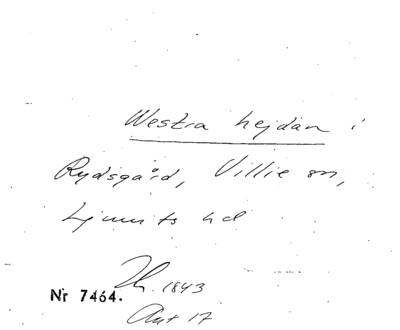 Westra hejdan i
Rydsgård, Villie sn,
Ljunits hd
Th. 1843
Nr 7464.
Ant 17